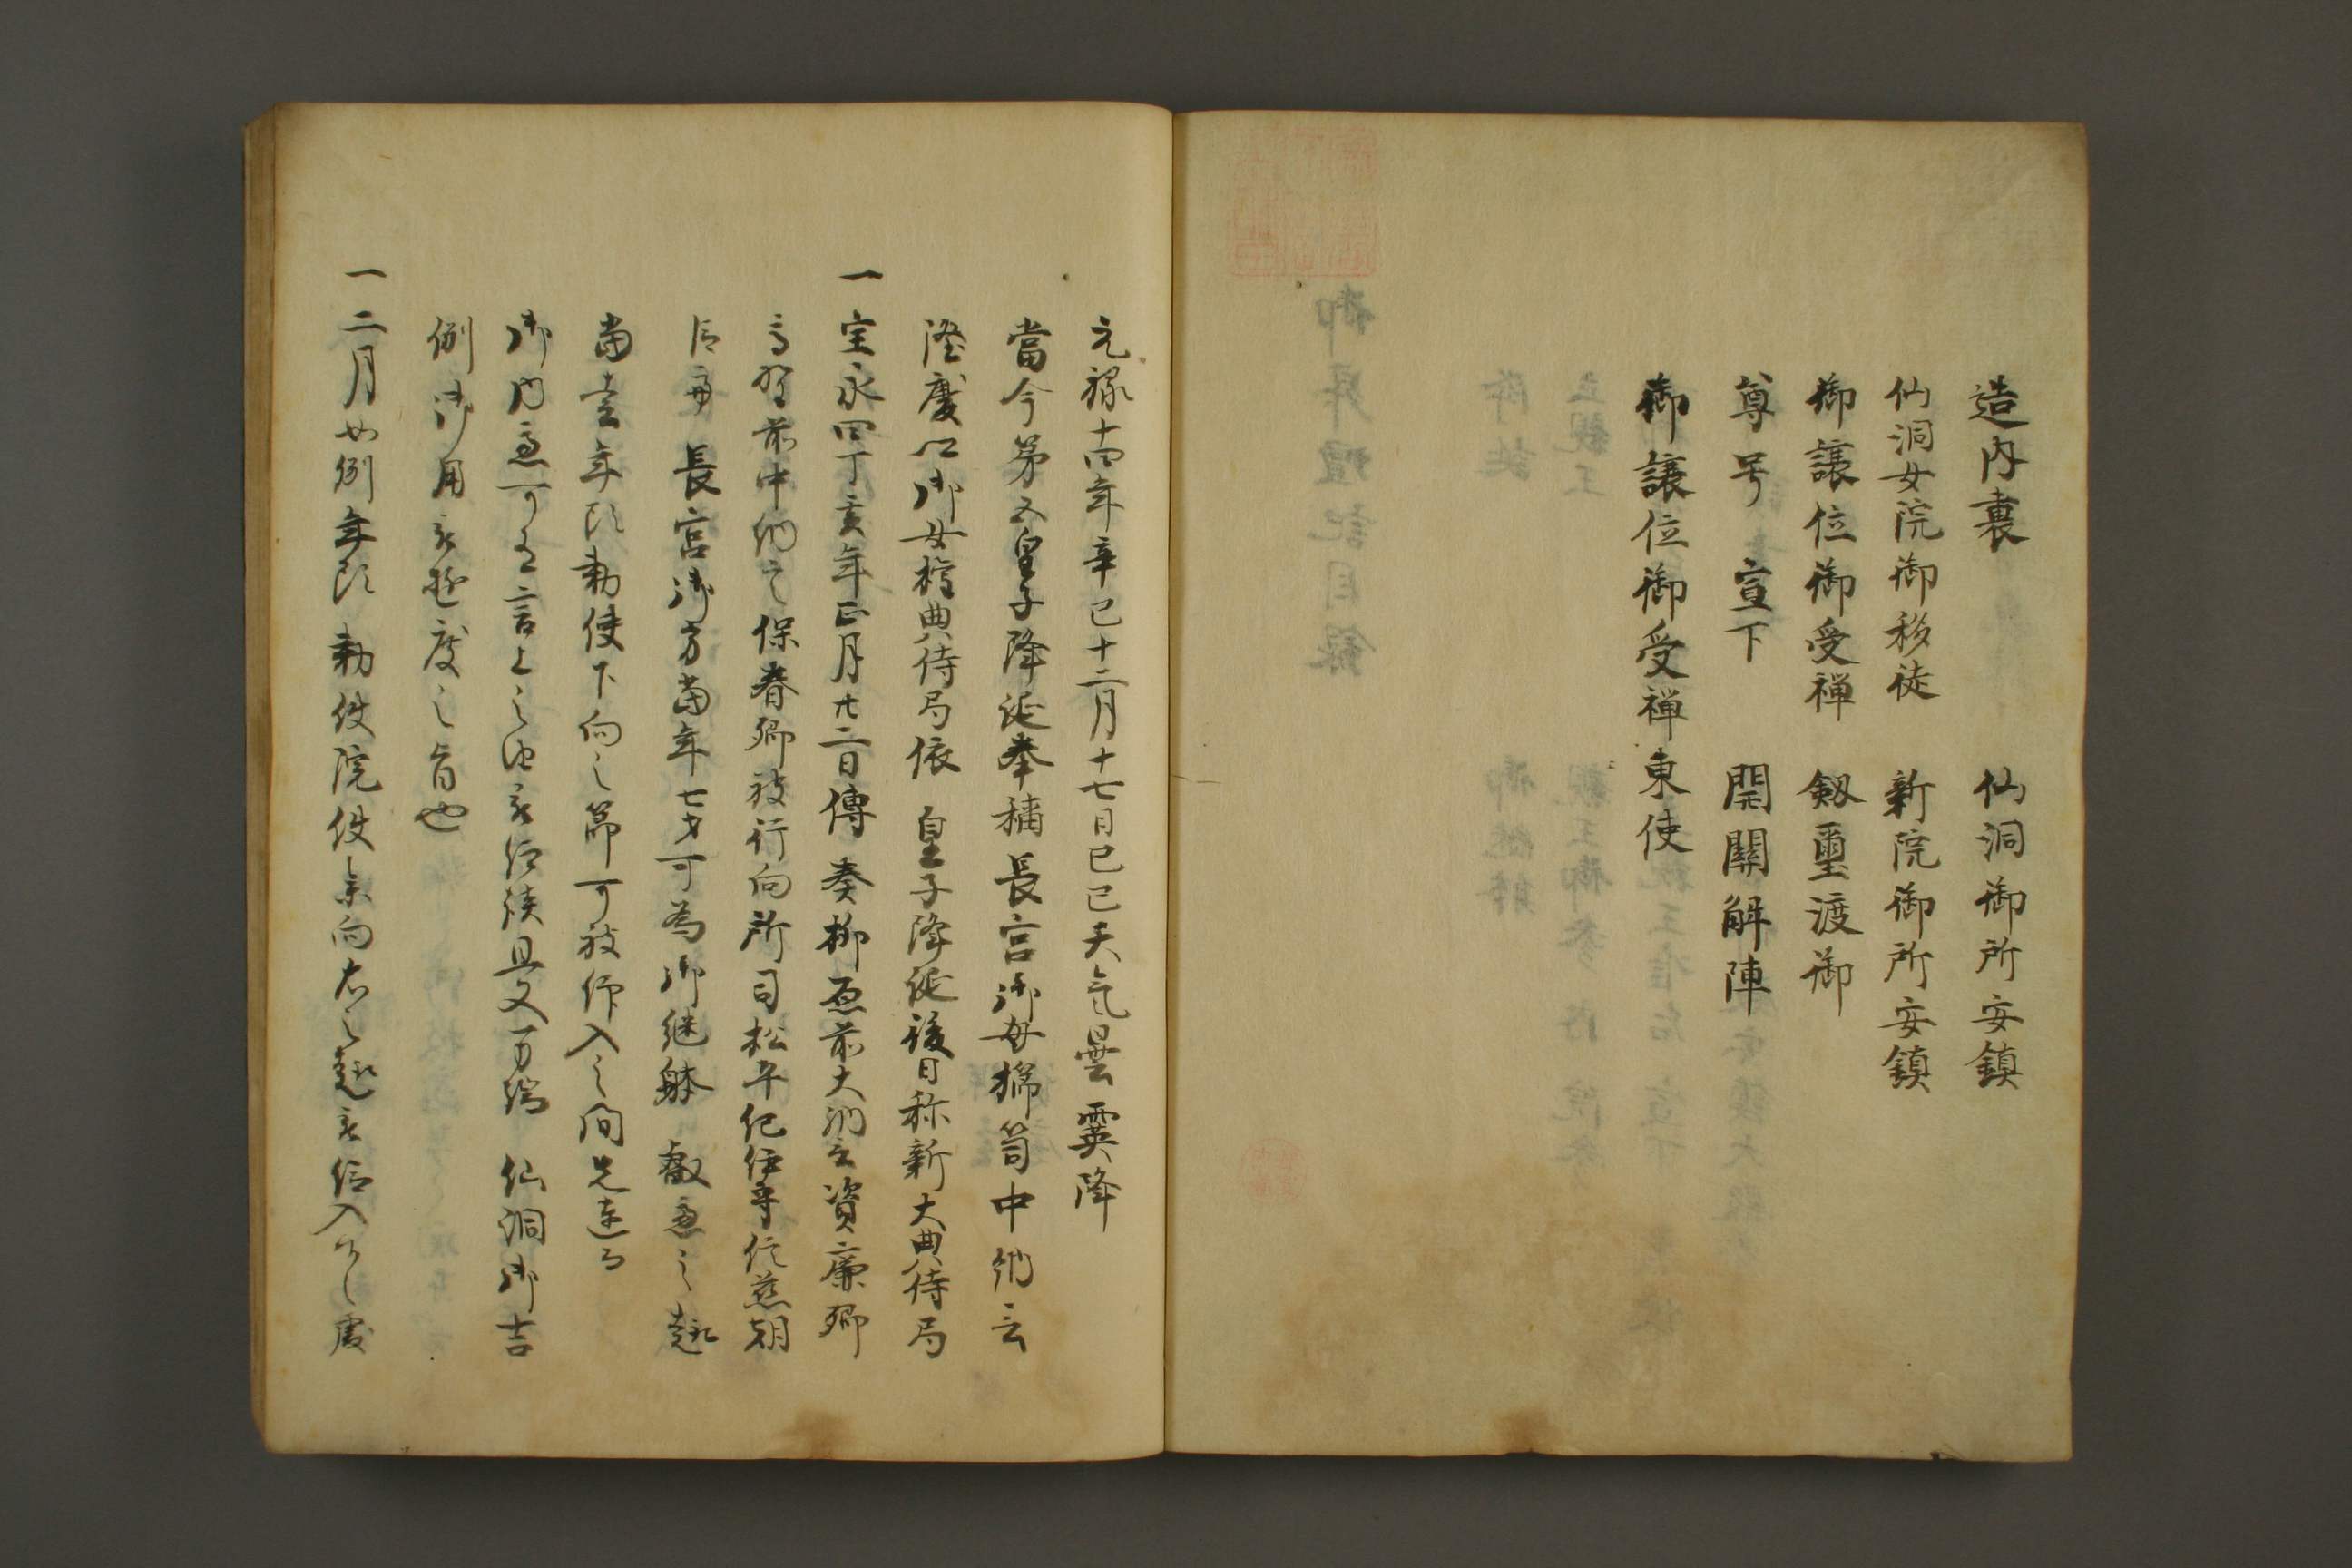 造内裏　仙洞御所安鎮
仙洞女院御移徙　新院御所安鎮
御譲位御受禅　釼璽渡御
尊号宣下　開關解陣
御譲位御受禅東使
元禄十四年辛巳十二月十七日己巳天気曇霙降
當今第五皇子降誕奉稱長宮御母櫛笥中納言
隆慶口御女権典侍局依　皇子降誕後日称新大典侍局
一宝永四丁亥年正月廿二日傳奏柳原前大納言資廉卿
高野前中納言保春卿被行向所司松平紀伊守信庸朝
臣亭　長宮御方當年七才可為御継躰　叡慮之趣
當春年頭勅使下向之節可被仰入之間先達而
御内意可有言上之由被仰談且又万端　仙洞御吉
例御用被遊度之旨也
一二月如例年頭勅使院使東向右之趣被仰入候處